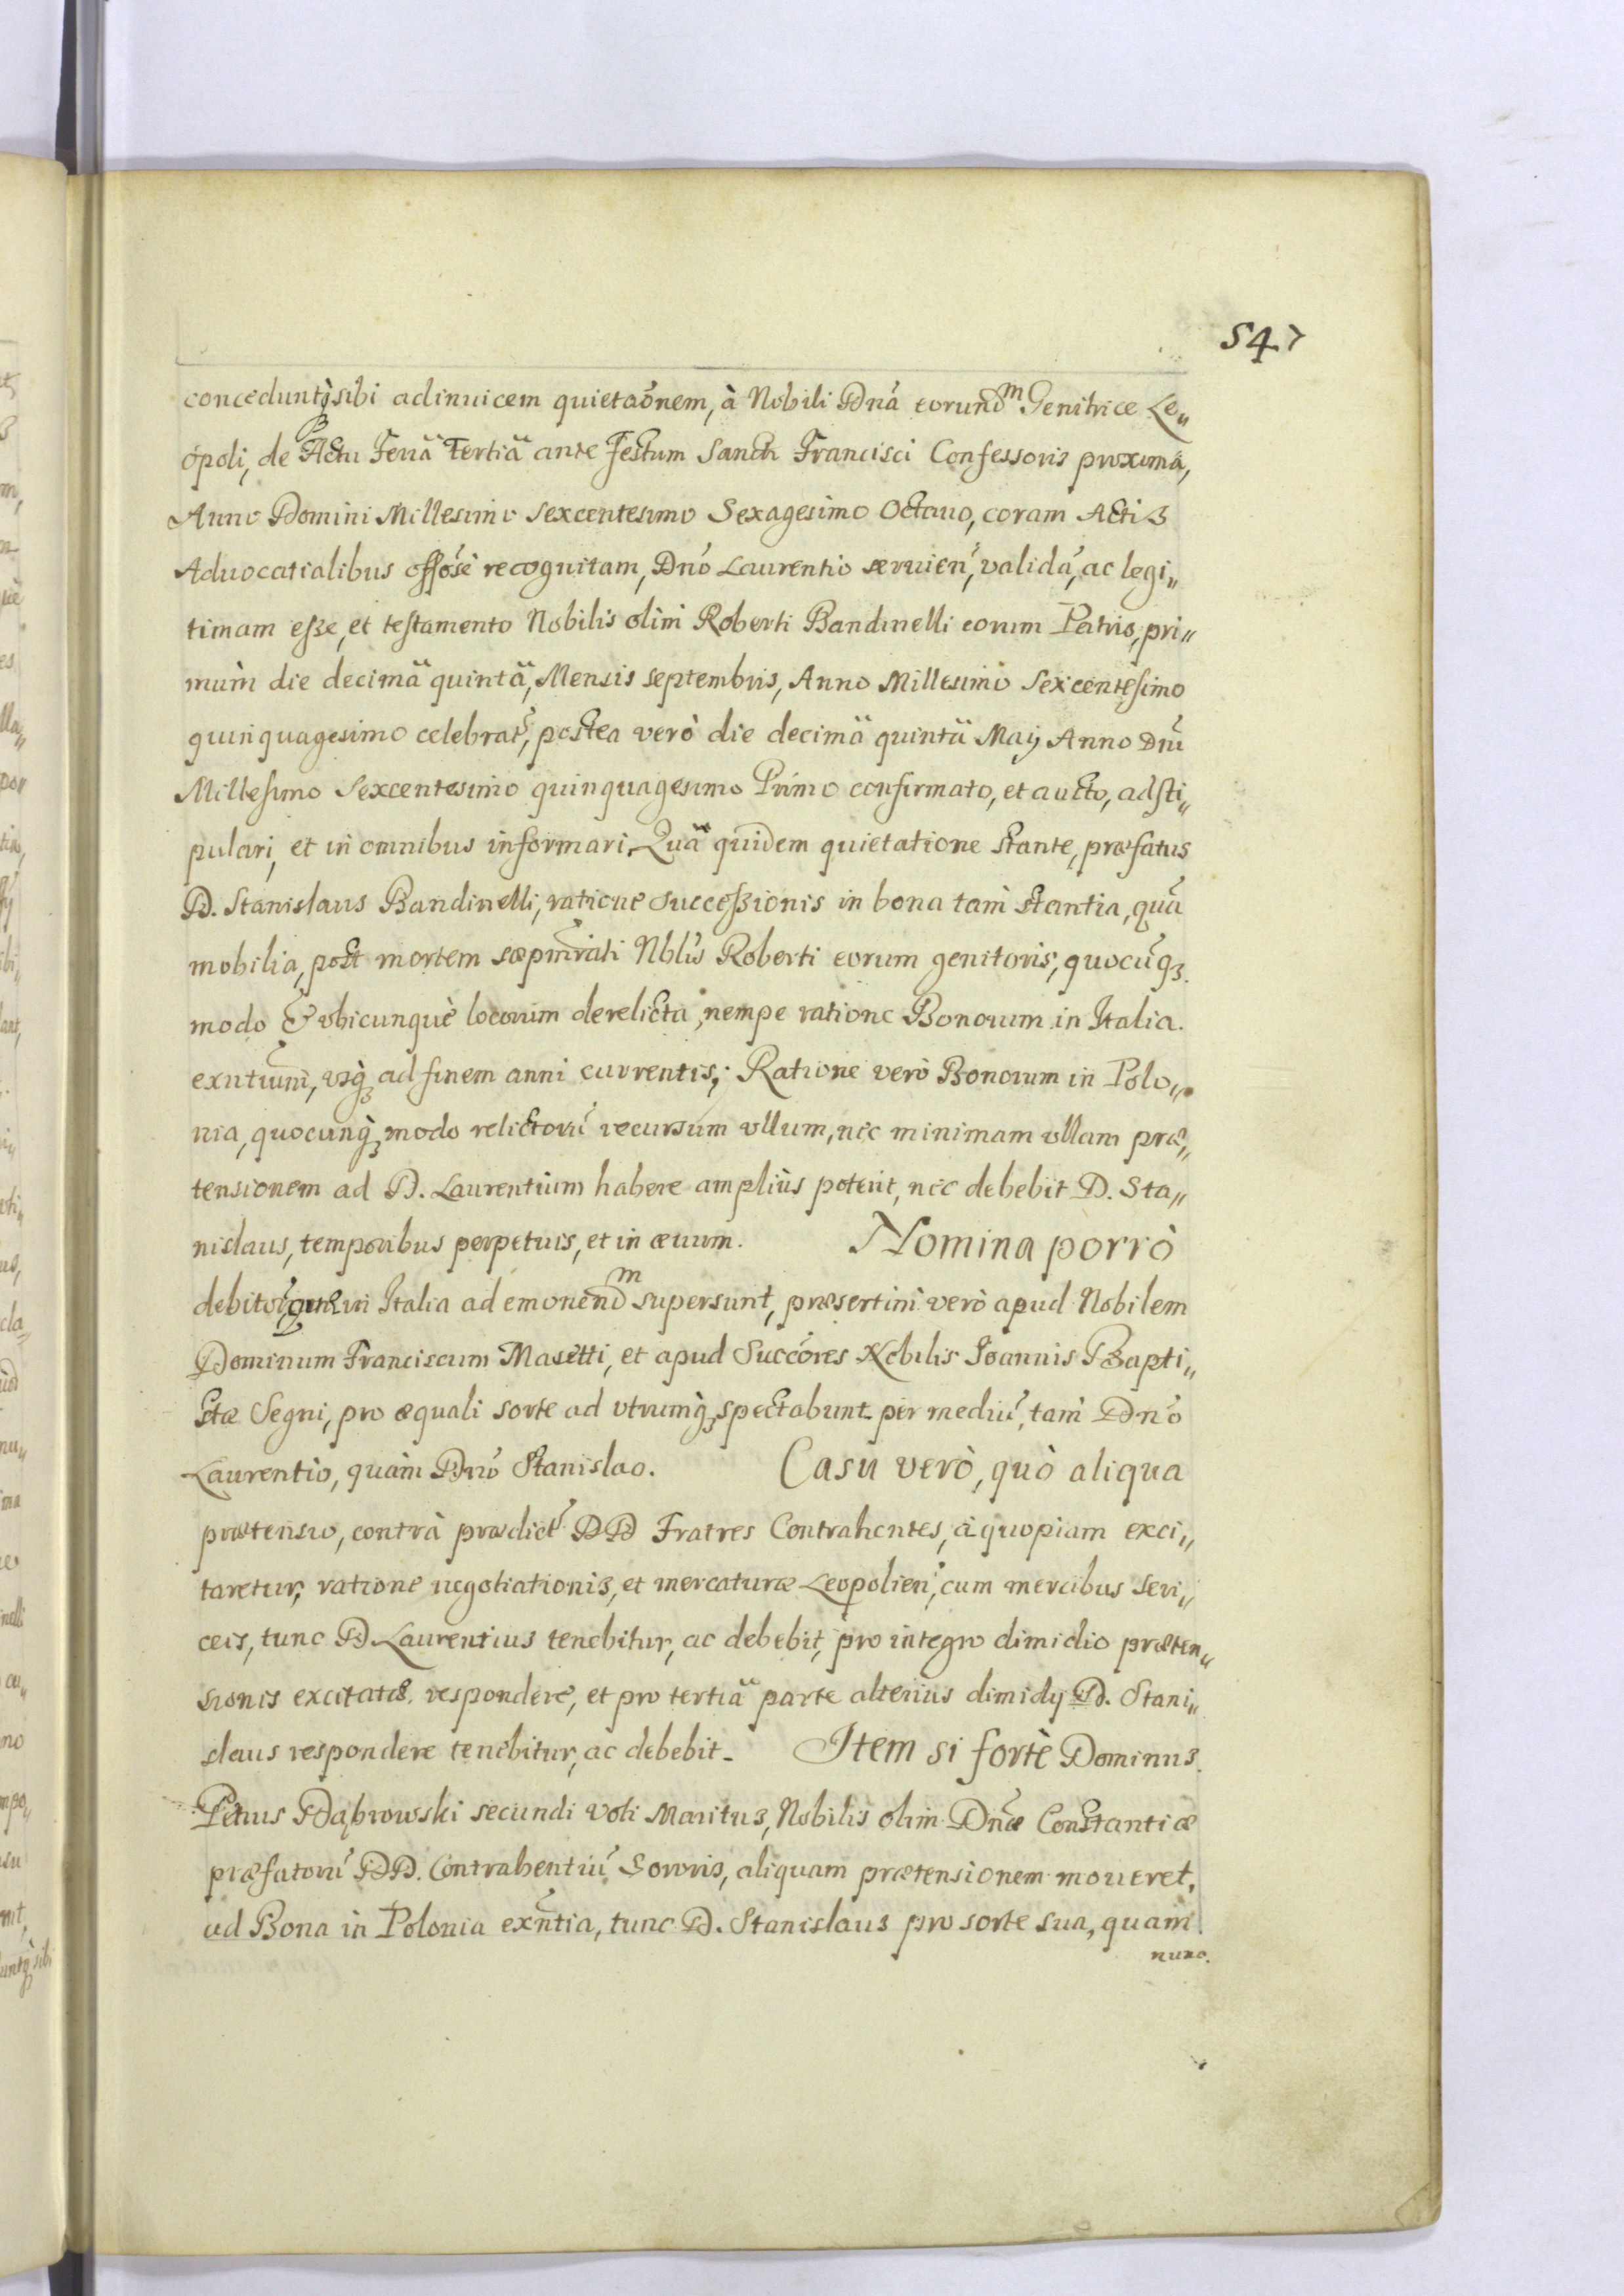 547
conceduntq; sibi adinuicem quietaõnem, à Nobili Dnã eorundm Genitrice Le„
opoli, de Actu Feriâ Tertiâ ante Festum Sancti Francisci Confessoris proximâ,
Anno Domini Millesimo Sexcentesimo Sexagesimo Octauo, coram Actis
Aduocatialibus offõsè recognitam, Dnõ Laurentio seruien̄, validã, ac legi„
timam esse, et testamento Nobilis olim Roberti Bandinelli eorum Patris, pri„
mùm die decimâ quintâ, Mensis Septembris, Anno Millesimo Sexcentesimo
quinquagesimo celebrat̃, postea verò die decimâ quintâ Maij Anno Dnĩ
Millesimo Sexcentesimo quinquagesimo Primo confirmato, et aucto, adsti„
pulari, et in omnibus informari. Quâ quidem quietatione stante, præfatus
D. Stanislaus Bandinelli, ratione successionis in bona tam stantia, quã
mobilia, post mortem sæpmrati Nblis Roberti eorum genitoris, quocũq;
modo & vbicunquè locorum derelicta, nempe ratione Bonorum in Italia
exntium, vsq; ad finem anni currentis; Ratione verò Bonorum in Polo„
nia, quocunq; modo relictorũ recursum vllum, nec minimam vllam præ„
tensionem ad D. Laurentium habere ampliùs poterit, nec debebit D. Sta„
nislaus, temporibus perpetuis, et in æuum. Nomina porrò
debitorũ, quæ in Italia ad emonendm supersunt, præsertim verò apud Nobilem
Dominum Franciscum Masetti, et apud Succõres Nobilis Ioannis Bapti„
stæ Segni, pro æquali sorte ad vtrumq; spectabunt per mediũ, tam Dnõ
Laurentio, quàm Dnõ Stanislao. Casu verò, quò aliqua
prætensio, contrà prædict̃ DD Fratres Contrahentes, à quopiam exci„
taretur, ratione negotiationis, et mercaturæ Leopolien̄, cum mercibus seri„
ceis, tunc D Laurentius tenebitur, ac debebit, pro integro dimidio præten„
sionis excitatæ respondere, et pro tertiâ parte alterius dimidij D. Stani„
slaus respondere tenebitur, ac debebit. Item si fortè Dominus
Petrus Dąbrowski secundi voti Maritus, Nobilis olim Dnæ Constantiæ
præfatorũ DD. Contrahentiũ Sororis, aliquam prætensionem moueret,
ad Bona in Polonia exntia, tunc D. Stanislaus pro sorte sua, quam
nunc